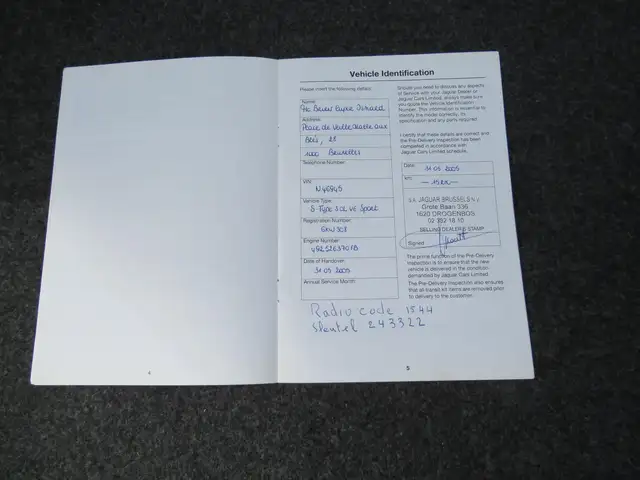 Vehicle Identification
Please insert the following details:
Name:
Address:
1000 Bruxelles
Telephone Number:
VIN:
N46945
Vehicle Type:
S-Type 3.0L V6 Sport
Registration Number:
Engine Number:
Date of Handover:
31 05 2005
Annual Service Month:
Radio code 1544
Sleutel 243322
Should you need to discuss any aspects
of Service with your Jaguar Dealer or
Jaguar Cars Limited, always make sure
you quote the Vehicle Identification
Number. This information is essential to
identify the model correctly, its
specification and any parts required.
I certify that these details are correct and
the Pre-Delivery Inspection has been
completed in accordance with
Jaguar Cars Limited schedule.
Date:
31 05 2005
S.A. JAGUAR BRUSSELS N.V.
Grote Baan 336
1620 DROGENBOS
SELLING DEALER'S STAMP
Signed
The prime function of the Pre-Delivery
Inspection is to ensure that the new
vehicle is delivered in the condition
demanded by Jaguar Cars Limited.
The Pre-Delivery Inspection also ensures
that all transit kit items are removed prior
to delivery to the customer.
4
5